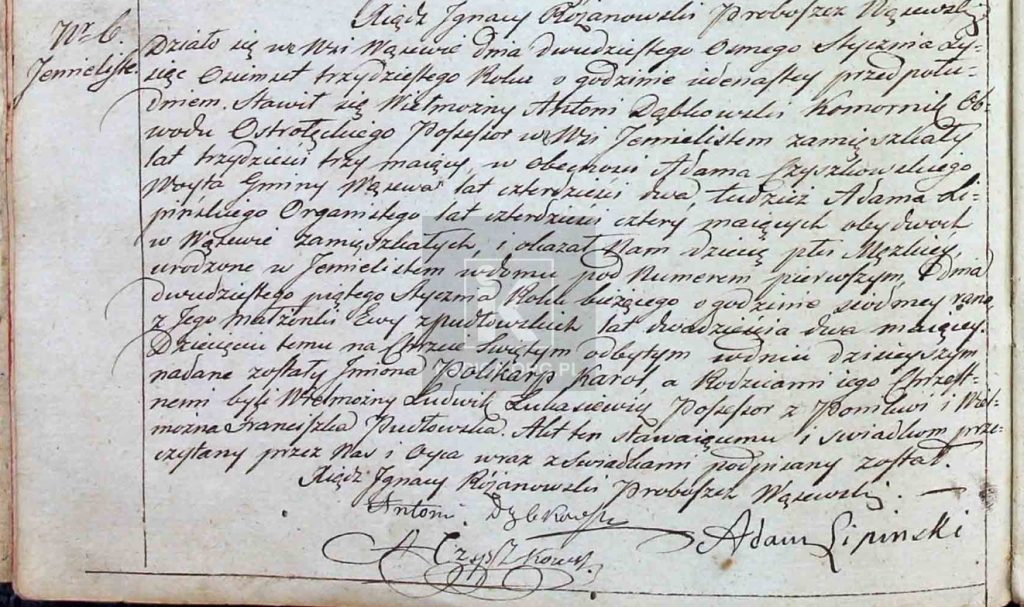 Xiądz Ignacy Różanowski Proboszcz Wąsewski
Nr 6.
Jemieliste.
Działo się we Wsi Wąsewie dnia dwudziestego Osmego Stycznia Ty-
siąc Osiemset trzydziestego Roku o godzinie iedenastey przed połu-
dniem. Stawił się Wielmożny Antoni Dąbkowski Komornik Ob-
wodu Ostrołęckiego Possessor we Wsi Jemielistem zamięszkały
lat trzydzieści trzy maiący, w obecności Adama Czyszkowskiego
Woyta Gminy Wąsewa lat czterdzieści dwa, tudzież Adama Li-
pińskiego Organistego lat czterdzieści cztery maiących obydwoch
w Wąsewie zamięszkałych, i okazał Nam dziecię płci Męzkiey,
urodzone w Jemielistem w domu pod Numerem pierwszym, dnia
dwudziestego piątego Stycznia Roku bieżącego o godzinie siodmey rano,
z Jego Małżonki Ewy z Pudłowskich lat dwadzieścia dwa maiącey.
Dziecięciu temu na Chrzcie Swiętym odbytym w dniu dzisieyszym
nadane zostały Imiona Polikarp Karol, a Rodzicami iego Chrzest-
nemi byli Wielmożny Ludwik Łukasiewicz Possessor z i Wiel-
można Franciszka Pudłowska. Akt ten stawaiącemu i swiadkom prze-
czytany przez Nas i Oyca wraz z swiadkami podpisany został.
Xiądz Ignacy Różanowski Proboszcz Wąsewski. —
Antoni Dąbkowski
Adam Lipinski
A Czyszkowski